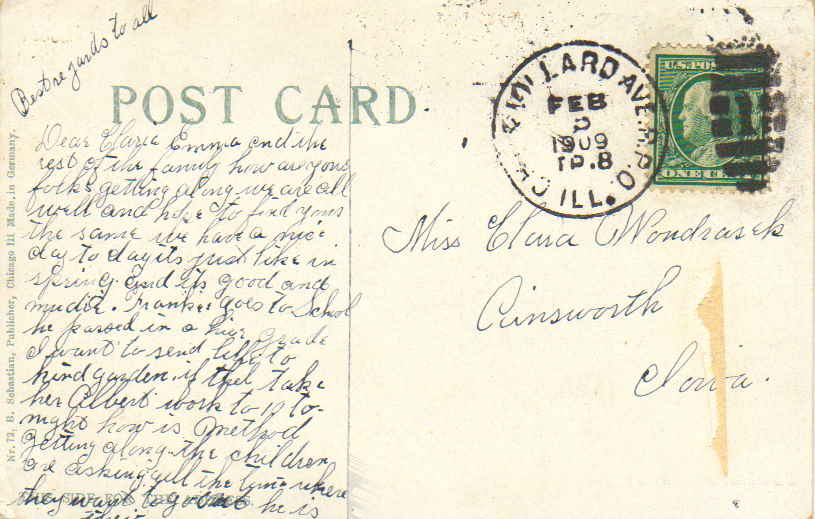 Best regards to all
POST CARD
Dear Clara Emma and the
rest of the family how are you
folks getting along we are all
well and hope to find yous
the same we have a nice
day to day its just like in
spring and its good and
muddie. Frankie goes to School
he passed in a hier grade
I want to send to
kindgarden if thel take
her Albert work to 10 to-
night how is Method
getting along the children
are asking all the time where
they want to go he is
Miss Clara Wondrasek
Ainsworth
Iowa.
MILLARD AVE. R.P.O.
FEB
1909
TR.8
ILL.
U.S. POS
ONE CE
Nr. 72, B. Sebastian, Publisher, Chicago Ill Made in Germany.
SIDE FOR